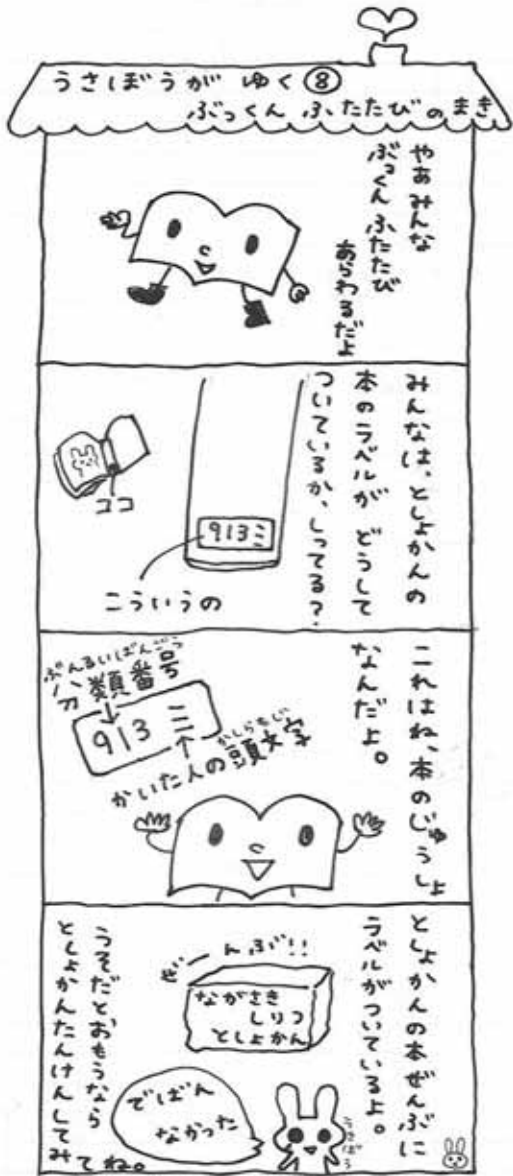 うさぼうが ゆく⑧
ぶっくん ふたたびのまき
やあみんな
ぶっくん ふたたび
あらわるだよ
みんなは、としょかんの
本のラベルが どうして
ついているか、しってる?
913ミ
ココ
こういうの
これはね、本のじゅうしょ
なんだよ。
ぶんるいばんごう
分類番号
913 ミ
かしらもじ
かいた人の頭文字
としょかんの本ぜんぶに
ラベルがついているよ。
ぜーんぶ!!
ながさき
しりつ
としょかん
うそだとおもうなら
としょかんたんけんしてみてね。
でばん
なかった
うさぼう